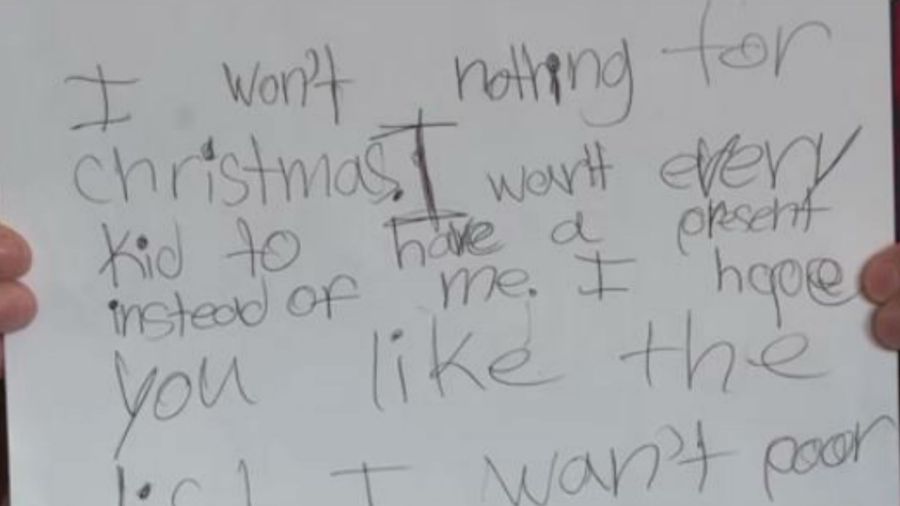 I won't nothing for
christmas. I wan't every
kid to have a present
instead of me. I hope
you like the
list I wan't poor